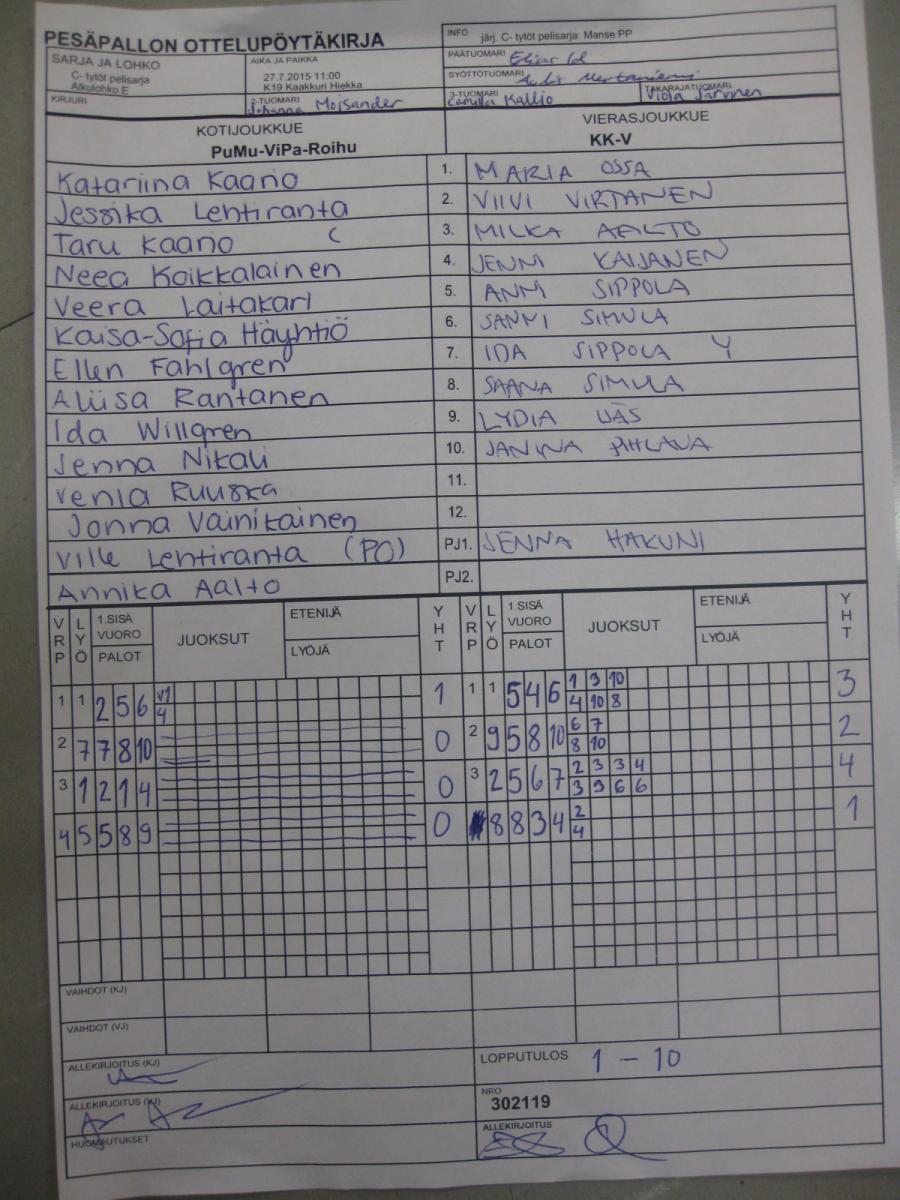 PESÄPALLON OTTELUPÖYTÄKIRJA
INFO järj. C- tytöt pelisarja: Manse PP
SARJA JA LOHKO
C- tytöt pelisarja
Alkulohko E
AIKA JA PAIKKA
27.7.2015 11:00
K19 Kaakkuri Hiekka
PÄÄTUOMARI
SYÖTTÖTUOMARI
KIRJURI
2-TUOMARI Johanna Mojsander
3-TUOMARI Camilla Kallio
TAKARAJATUOMARI Viola Järvinen
KOTIJOUKKUE
PuMu-ViPa-Roihu
VIERASJOUKKUE
KK-V
Katariina Kaario 1. MARIA OSSA
Jessika Lehtiranta 2. VIIVI VIRTANEN
Taru Kaario C 3. MILKA AALTO
Neea Koikkalainen 4. JENNI KAIJANEN
Veera Laitakari 5. ANNI SIPPOLA
Kaisa-Sofia Häyhtiö 6. SANNI SIMULA
Ellen Fahlgren 7. IDA SIPPOLA Y
Aliisa Rantanen 8. SAANA SIMULA
Ida Willgren 9. LYDIA UÄS
Jenna Nikali 10. JANINA PIHLAVA
Venla Ruuska 11.
Jonna Väinikainen 12.
Ville Lehtiranta (PO) PJ1. JENNA HAKUNI
Annika Aalto PJ2.
VRP LYÖ 1.SISÄ VUORO PALOT JUOKSUT ETENIJÄ LYÖJÄ YHT VRP LYÖ 1.SISÄ VUORO PALOT JUOKSUT ETENIJÄ LYÖJÄ YHT
1 1 2 5 6 V1 1 1 1 5 4 6 1 3 10 3
4 4 10 8
2 7 7 8 10 0 2 9 5 8 10 6 7 2
8 10
3 1 2 1 4 0 3 2 5 6 7 2 3 3 4 4
3 3 6 6
4 5 5 8 9 0 8 8 3 4 2 1
4
VAIHDOT (KJ)
VAIHDOT (VJ)
ALLEKIRJOITUS (KJ)
LOPPUTULOS 1 - 10
ALLEKIRJOITUS (VJ)
NRO
302119
HUOMAUTUKSET
ALLEKIRJOITUS